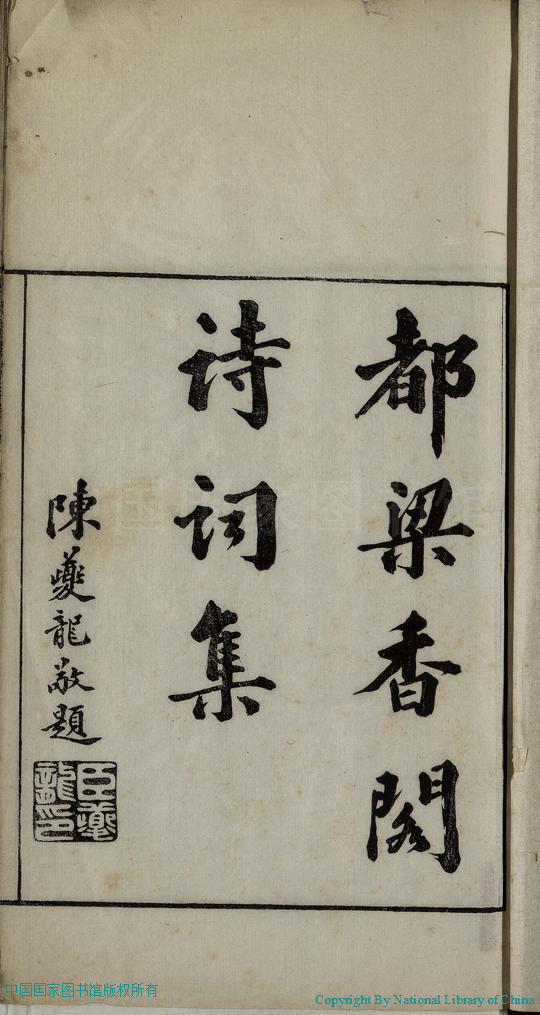 都梁香閣
诗词集
陳夔龍敬題
臣夔
龍印
中国国家图书馆版权所有
Copyright By National Library of China